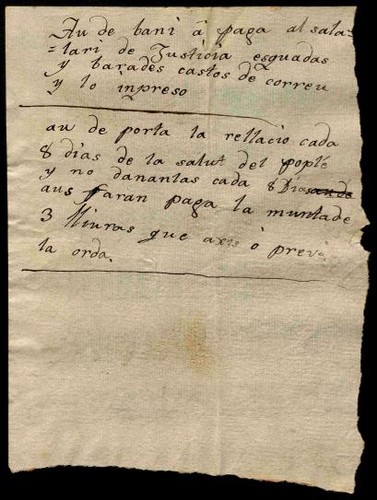 Au de bani à paga al sala=
=lari de Justicia esguadas
y barades castos de correu
y lo inpreso
au de porta la rellacio cada
8 dias de la salut del poplé
y no danantas cada 8 Dias
aus faran paga la muntade
3 lliuras que axis ò prevè
la orda.